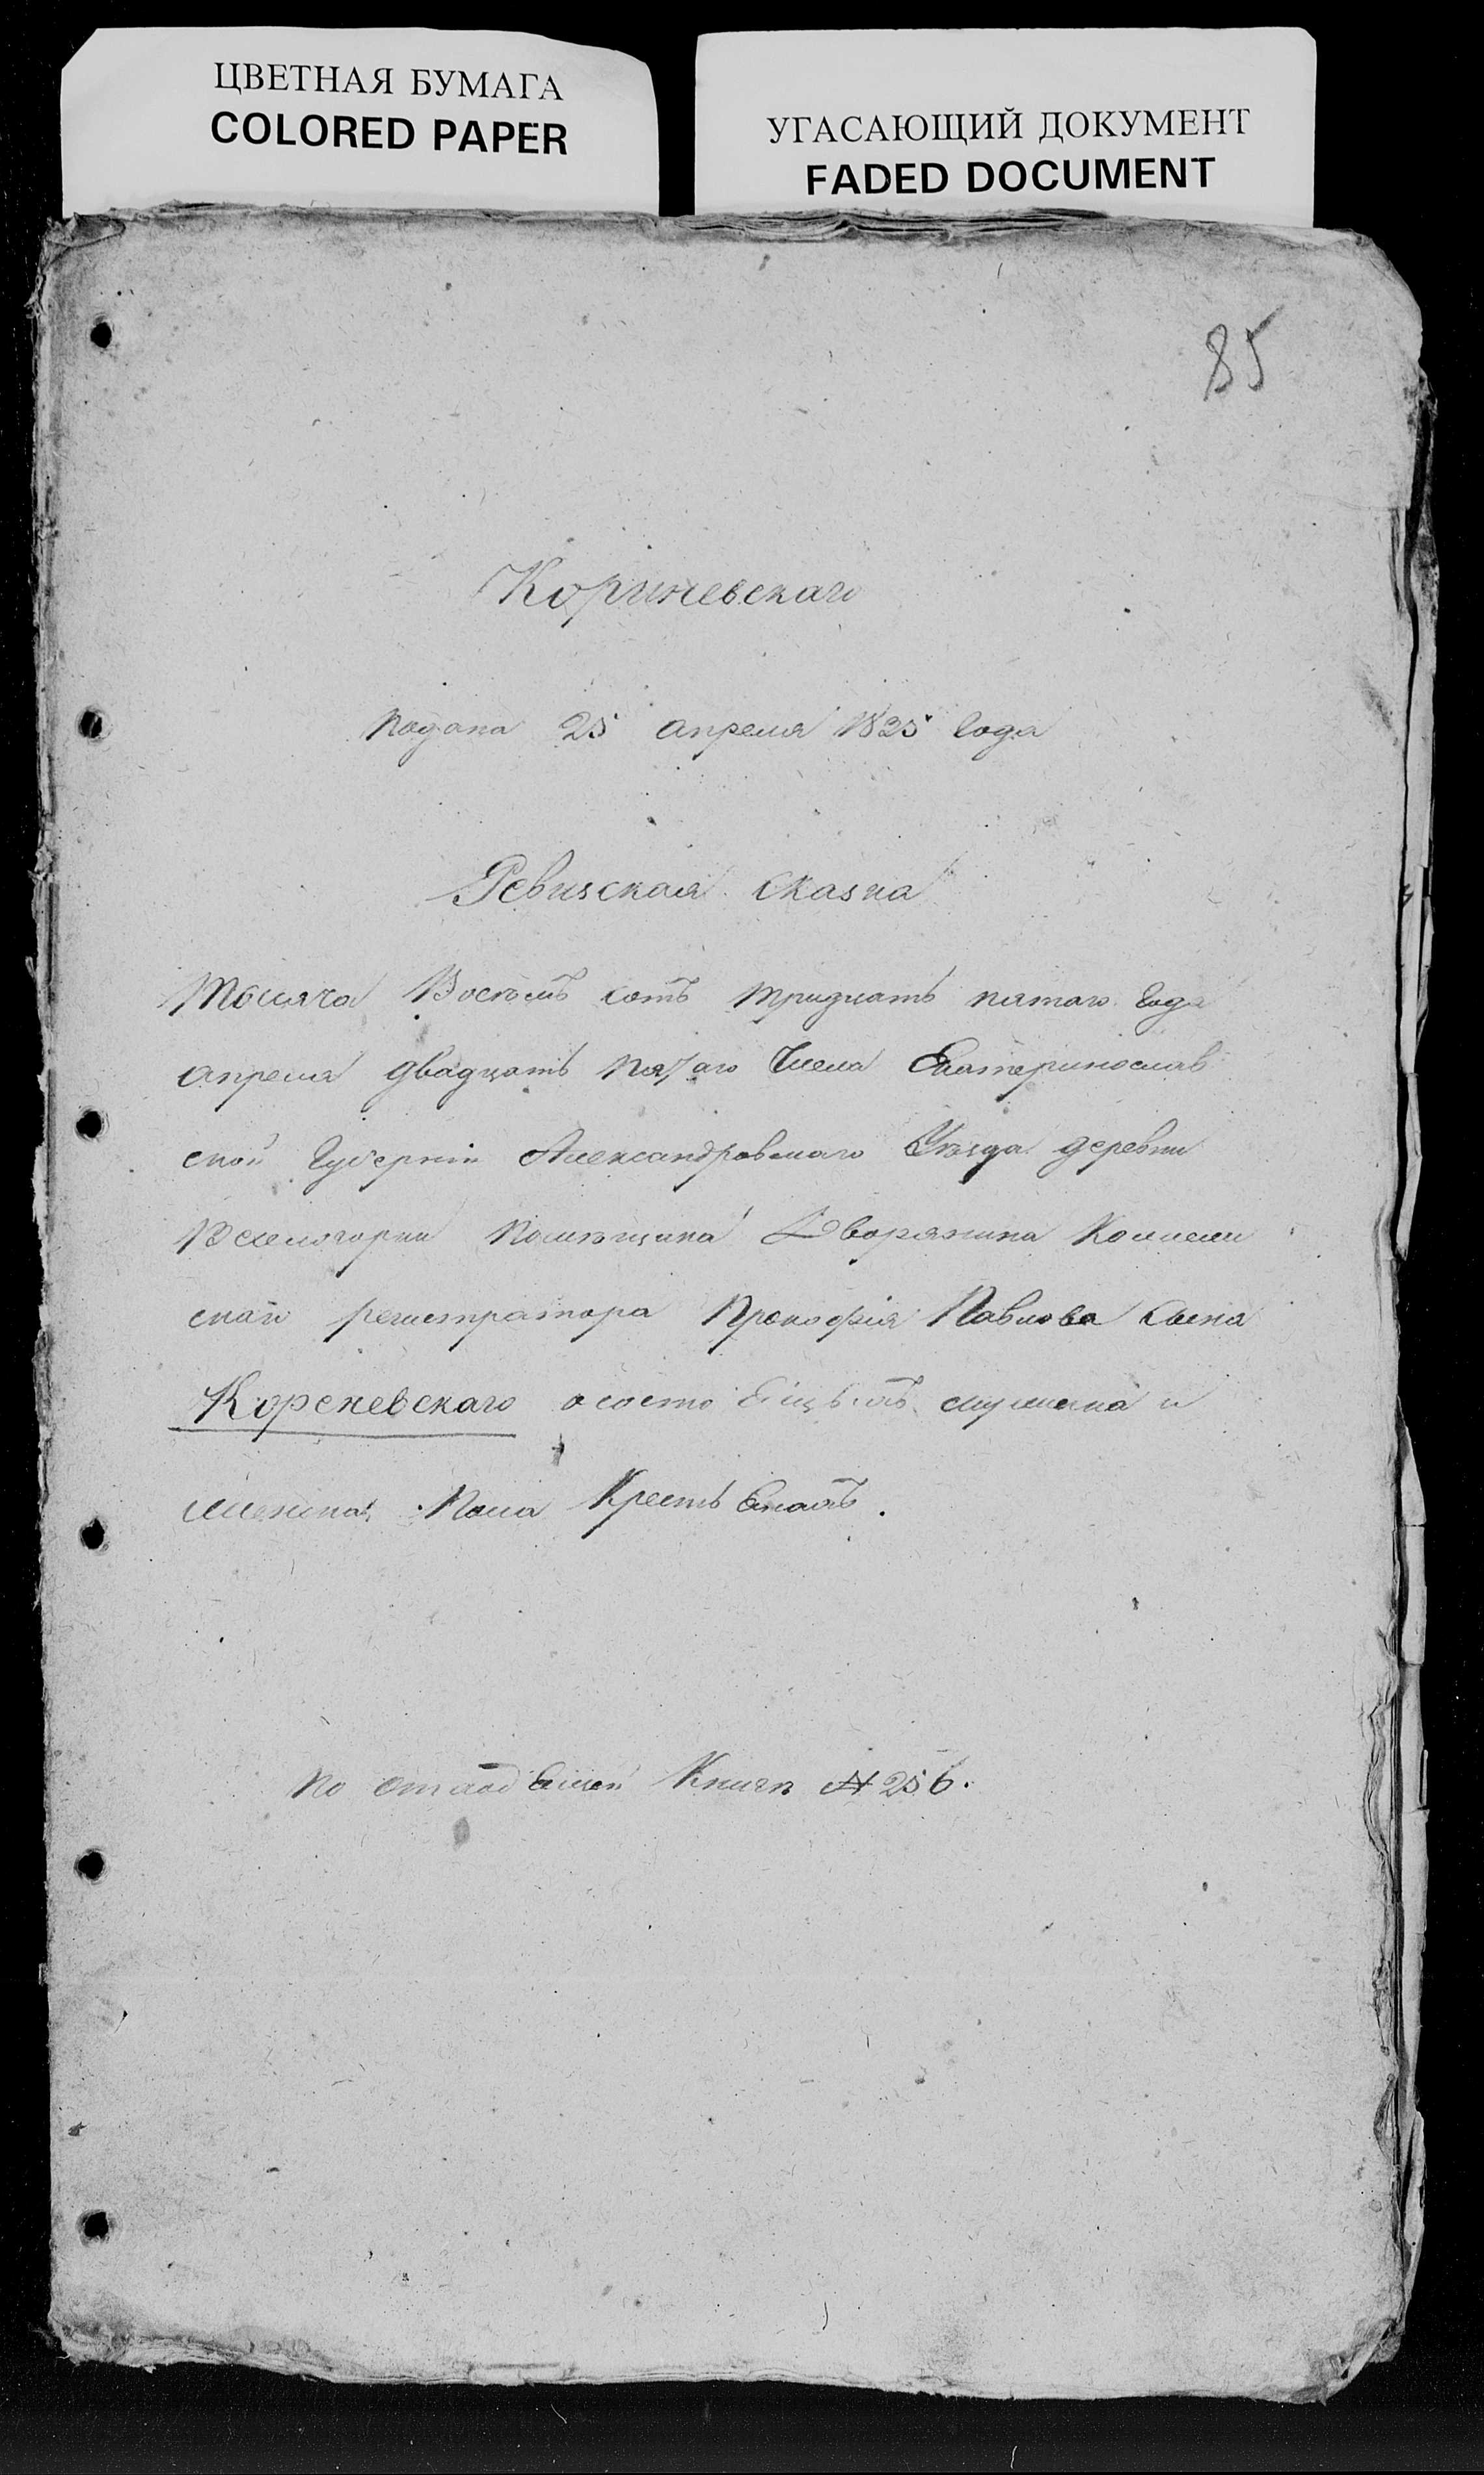 ЦВЕТНАЯ БУМАГА
COLORED PAPER
УГАСАЮЩИЙ ДОКУМЕНТ
FADED DOCUMENT
85
Кориневскаго
подана 25 апреля 1835 года
Ревизская сказка
Тысяча Восемь сотъ тридцать пятаго года
апреля двадцать пятаго числа Екатеринослав
ской Губерніи Александровскаго Уезда деревни
помещика Дворянина Коллеж
скаго регистратора Прокофія Павлова сына
Кореневскаго о состо
пола Крестьянахъ.
по Книге № 256.